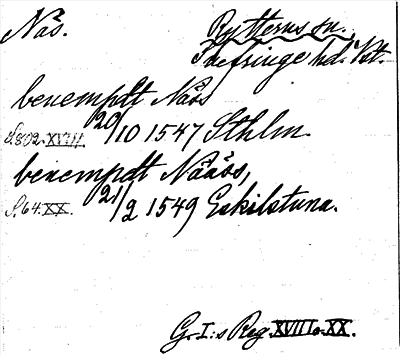 Näs. Rytterns sn.
Tuhfringe hd. Vst.
benempdt Näss
S.802.XVIII. 20/10 1547 Sthlm.
benempdt Näääs,
S.64.XX. 21/2 1549 Eskilstuna.
G. I:s Reg. XVIII o. XX.